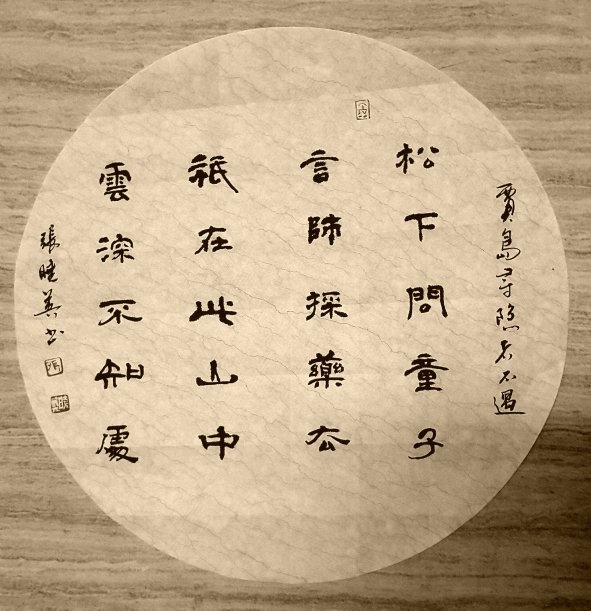 賈島尋隱者不遇
松下問童子
言師採藥去
祇在此山中
雲深不知處
張曉英書